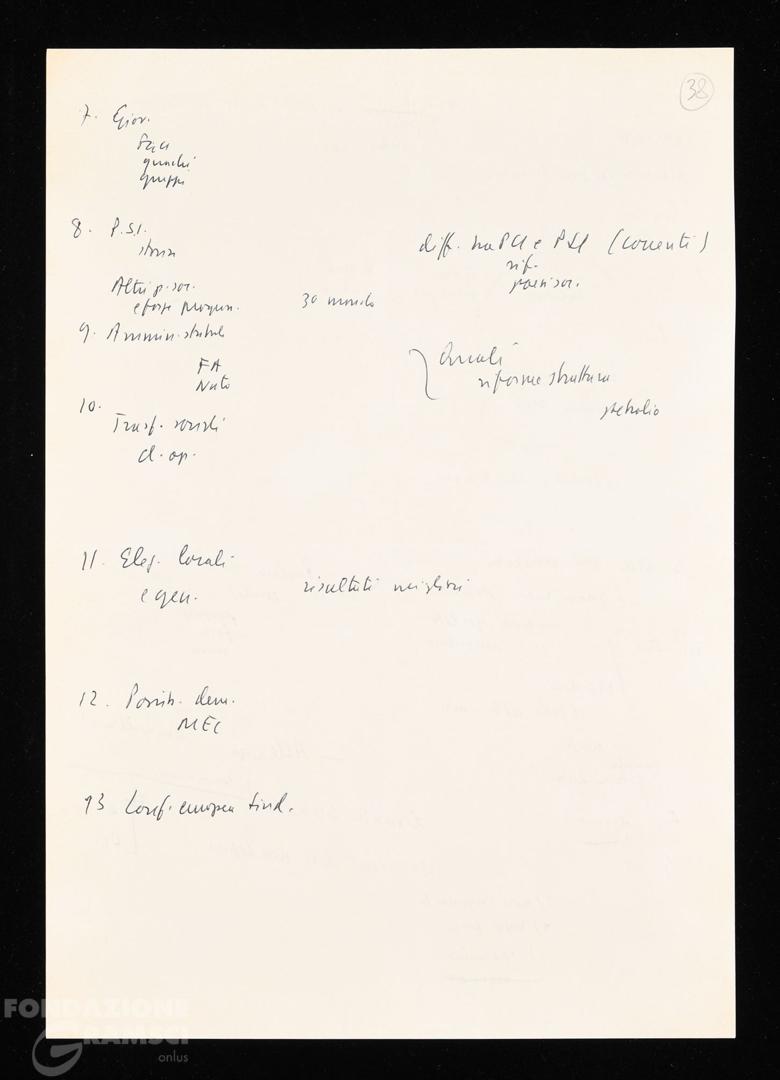 38
7. Giov.
Fgci
gruppi
8. P.S.I.
storia
diff. tra PCI e PSI (correnti)
rif.
paesi soc.
Altri p. soc.
e forze progr.
3º mondo
9. Amministrat.
FA
Nato
Quali
riforme struttura
petrolio
10.
Trasf. sociali
cl. op.
11. Elez. locali
e gen.
risultati migliori
12. Possib. dem.
MEC
13 Conf. europea sind.
FONDAZIONE
GRAMSCI
onlus